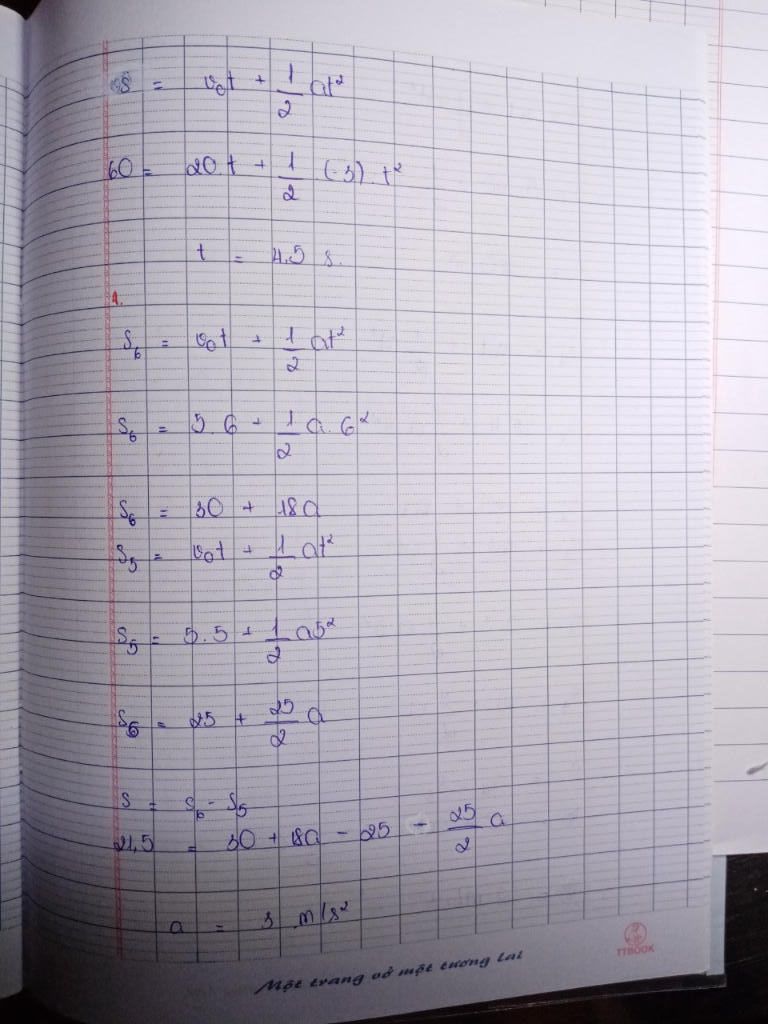 s = v₀t + 1/2 at²
60 = 20.t + 1/2 (-3).t²
t = 4.5 s.
1.
S₆ = v₀t + 1/2 at²
S₆ = 5.6 + 1/2 a.6²
S₆ = 30 + 18a
S₅ = v₀t + 1/2 at²
S₅ = 5.5 + 1/2 a5²
S₅ = 25 + 25/2 a
s = s₆ - s₅
21,5 = 30 + 18a - 25 - 25/2 a
a = 3 m/s²
Một trang vở một tương lai
TTBOOK